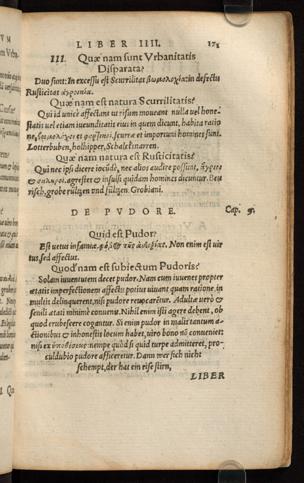 LIBER IIII. 178
III. Quæ nam sunt Vrbanitatis
Disparata?
Duo sunt: In excessu est Scurrilitas βωμολοχία: in defectu
Rusticitas ἀγροικία.
Quæ nam est natura Scurrilitatis?
Qui id unicè affectant ut risum moueant nulla uel hone-
statis uel etiam iucunditatis eius in quem dicunt, habita ratio
ne, βωμολόχοι et φορτικοὶ, scurræ et importuni homines sunt.
Lotterbuben, holhipper, Schalcksnarren.
Quæ nam est natura Rusticitatis?
Qui nec ipsi dicere iocũdè, nec alios audire possunt, ἄγροικοι
agrestes et insulsi quidam homines dicuntur. Beu
risch, grobe vnd Grobiani.
DE PVDORE. Cap. 9.
Quid est Pudor?
Est metus infamiæ. Non enim est uir
tus, sed affectus.
Quod nam est subiectum Pudoris?
Solam iuuentutem decet pudor. Nam cum iuuenes propter
ætatis imperfectionem affectu potius uiuant quàm ratione, in
multis delinquerent, nisi pudore reuocarẽtur. Adulta uerò &
senili ætati minimè conuenit. Nihil enim isti agere debent, ob
quod erubescere cogantur. Si enim pudor in malitantum a-
ctionibus & inhonestis locum habet, uiro bono nõ conueniet
nisi ex ὑποθέσεως nempe quòd si quid turpe admitteret, pro-
culdubio pudore afficeretur. Dann wer sich nicht
schempt, der hat ein stirn,
LIBER